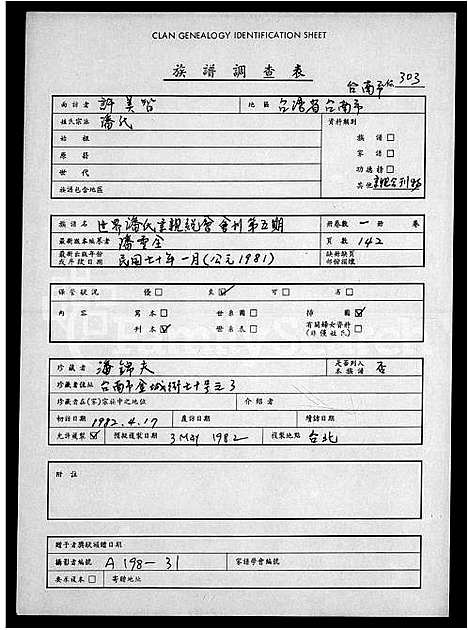 CLAN GENEALOGY IDENTIFICATION SHEET
族譜調查表
台南市 303
面訪者 許美智 地區 台灣省台南市
姓氏宗派 潘氏 資料類別
始祖 族譜 □
原籍 家譜 □
世代 功德榜 □
族譜包含地區 其他 宗親會刊物
族譜名 世界潘氏宗親總會會刊第五期 冊卷數 一 冊 卷
最新版本編纂者 潘雲全 頁數 142
最新出版年份或序段日期 民國七十年一月(公元1981) 缺冊缺頁部份損壞
保管狀況 優 □ 良 ☑ 可 □ 劣 □
內容 寫本 □ 世系圖 □ 插圖 ☑
刊本 ☑ 世系表 □ 有關婦女資料(非僅姓氏) □
珍藏者 潘錦夫 是否列入本族譜 否
珍藏者住址 台南市金城街七十号之3
珍藏者在(家)宗族中之地位 介紹者
初訪日期 1982.4.17 複訪日期 續訪日期
允許複製 ☑ 預擬複製日期 3 MAY 1982 複製地點 台北
附註
贈予者獎狀頒贈日期
攝影者編號 A 198-31 家譜學會編號
要求複本 □ 寄贈日期